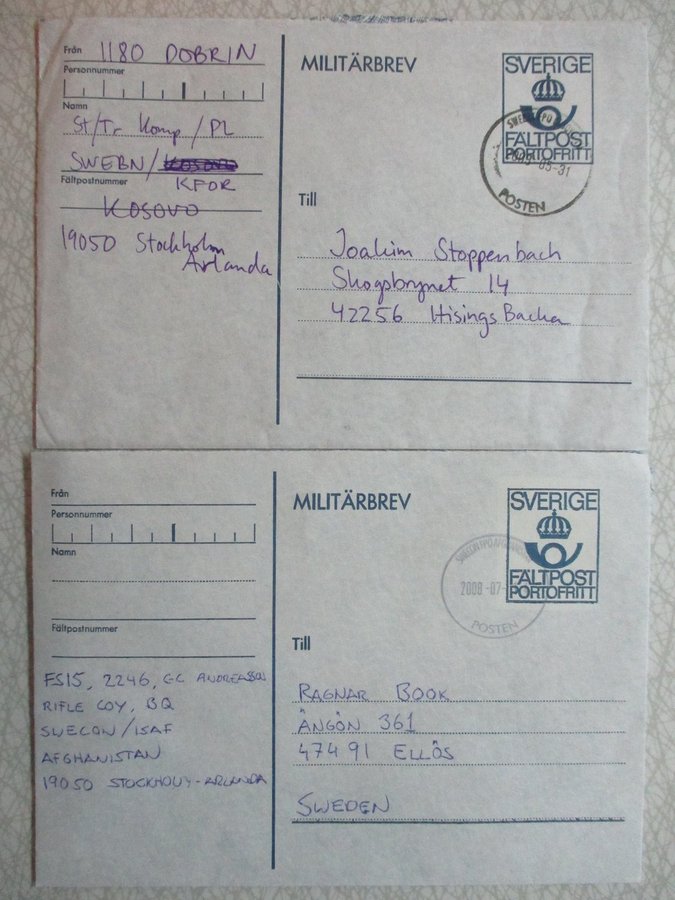 Från 1180 DOBRIN
Personnummer
Namn
St/Tr Komp/PL
SWEBN/KOSOVO
Fältpostnummer KFOR
KOSOVO
19050 Stockholm
Arlanda
MILITÄRBREV
SVERIGE
FÄLTPOST
PORTOFRITT
-05-31
POSTEN
Till
Joakim Stoppenbach
Skogsbrynet 14
42256 Hisings Backa
Från
Personnummer
Namn
Fältpostnummer
FS15, 2246, GC ANDREASSON
RIFLE COY, BQ
SWECON/ISAF
AFGHANISTAN
19050 STOCKHOLM-ARLANDA
MILITÄRBREV
SVERIGE
FÄLTPOST
PORTOFRITT
2008-07-
POSTEN
Till
RAGNAR BOOK
ÄNGÖN 361
474 91 ELLÖS
SWEDEN